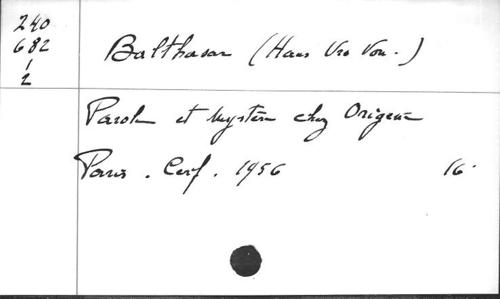 240
682
1
2
Balthasar (Hans Urs Von.)
Parole et Mystère chez Origène
Paris. Cerf. 1956 16°